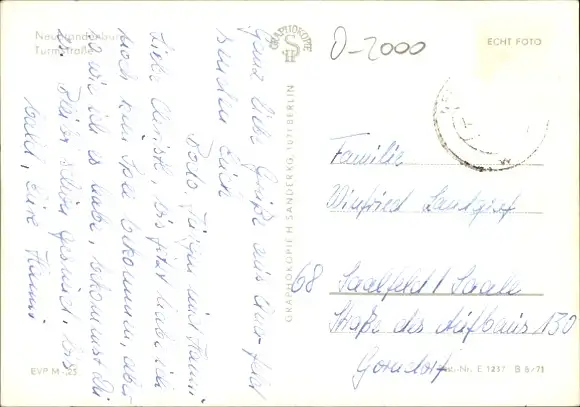 Neubrandenburg
Turmstraße
Ganz liebe Grüße aus
senden Euch
Bodo, Jürgen und Hanni
Liebe Christl, bis jetzt habe ich
noch kein bekommen, aber
so wie ich es habe, bekommst Du
es. Bleibt schön gesund. bis
bald, Eure Hanni
EVP M -,25
GRAPHOKOPIE
GRAPHOKOPIE H. SANDER KG. 1071 BERLIN
0-2000
ECHT FOTO
Familie
Winfried Landgraf
68 Saalfeld / Saale
Straße des Aufbaus 130
Gorndorf
Best.-Nr. E 1257 B 6/71